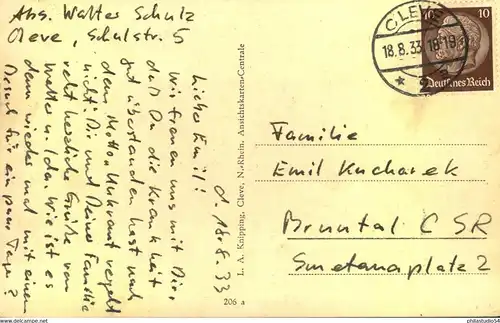 Abs. Walter Schulz
Cleve, Schulstr. 5
d. 18.8.33
Lieber Emil!
Wir freuen uns mit Dir,
daß Du die Krankheit
gut überstanden hast nach
dem Motto Unkraut vergeht
nicht. Dir und Deiner Familie
recht herzliche Grüße von
Walter u. Ida. Wie ist es
denn wieder mal mit einem
Besuch für ein paar Tage?
L. A. Knipping, Cleve, N.-Rhein. Ansichtskarten-Centrale
206 a
CLEVE
18.8.33 18-19
10 10
Deutsches Reich
Familie
Emil Kucharek
Bruntal CSR
Smetanaplatz 2
philastudio54